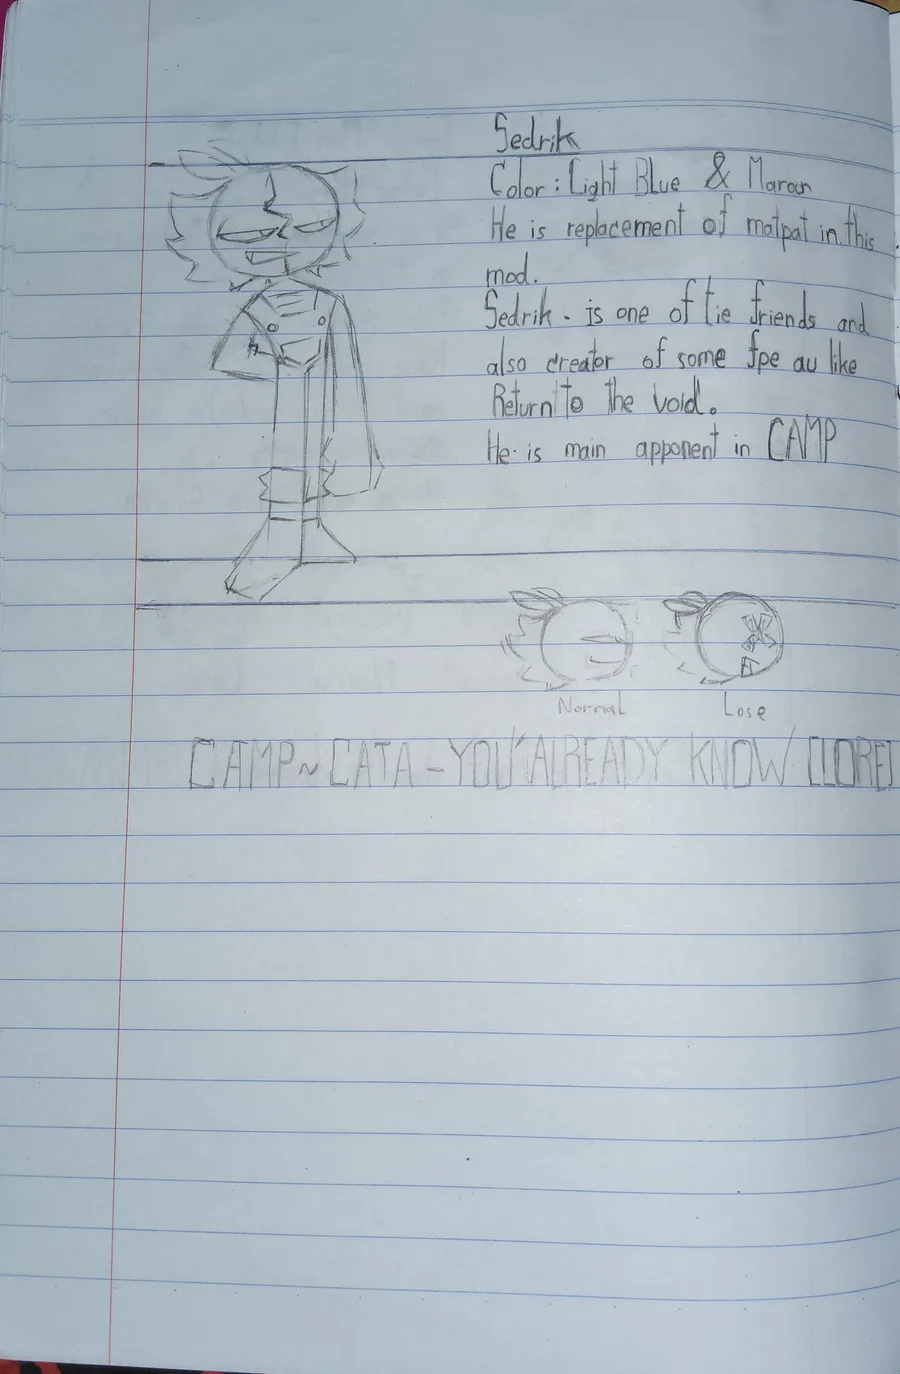 Sedrik
Color : Light Blue & Maroon
He is replacement of matpat in this
mod.
Sedrik - is one of tie friends and
also creator of some fpe au like
Return to the void.
He is main apponent in CAMP
Normal
Lose
CAMP~CATA-YOU'ALREADY KNOW